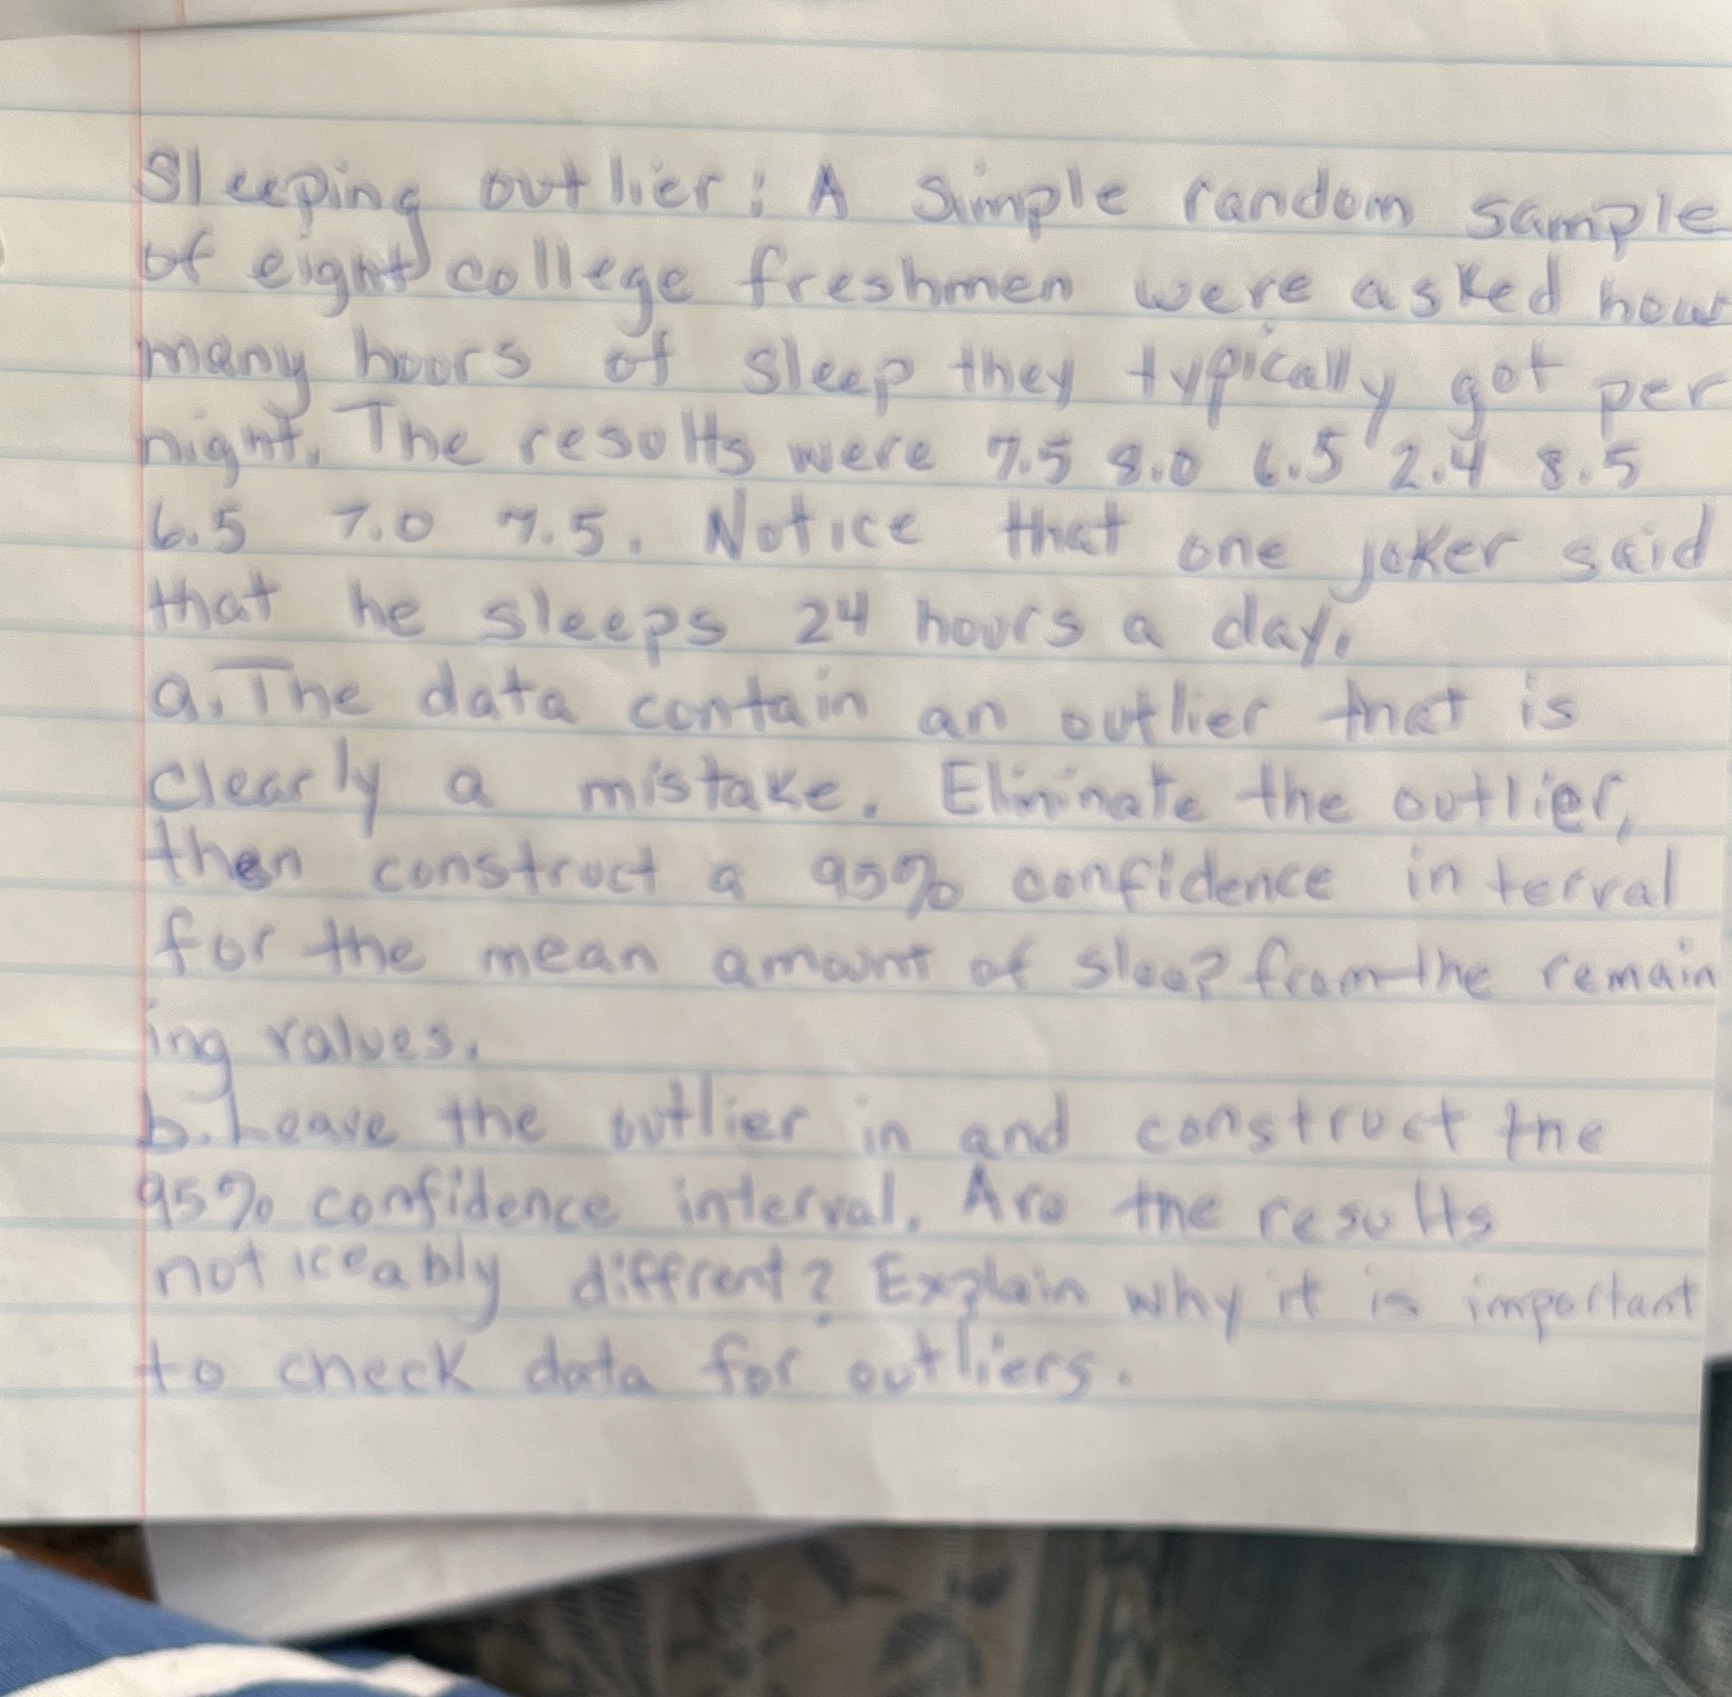 Sleeping outlier: A simple random sample
of eight college freshmen were asked how
many hours of sleep they typically got per
night. The results were 7.5 8.0 6.5 2.4 8.5
6.5 7.0 7.5. Notice that one joker said
that he sleeps 24 hours a day.
a. The data contain an outlier that is
clearly a mistake. Eliminate the outlier,
then construct a 95% confidence interval
for the mean amount of sleep from the remain
ing values.
b. Leave the outlier in and construct the
95% confidence interval. Are the results
noticeably diffrent? Explain why it is important
to check data for outliers.